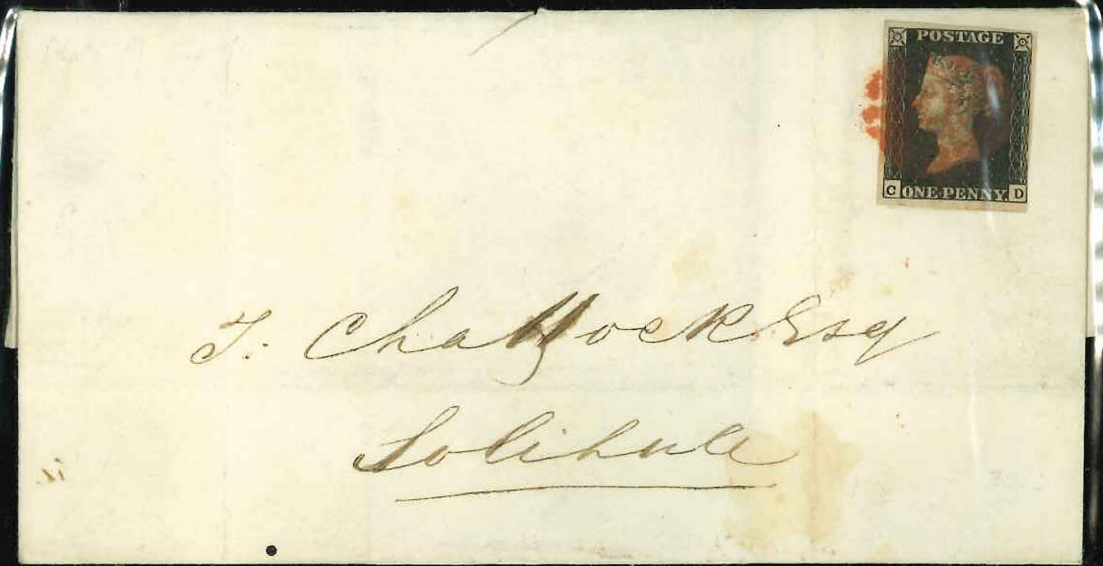 POSTAGE
C ONE PENNY. D
T. Chattock Esq
Solihull